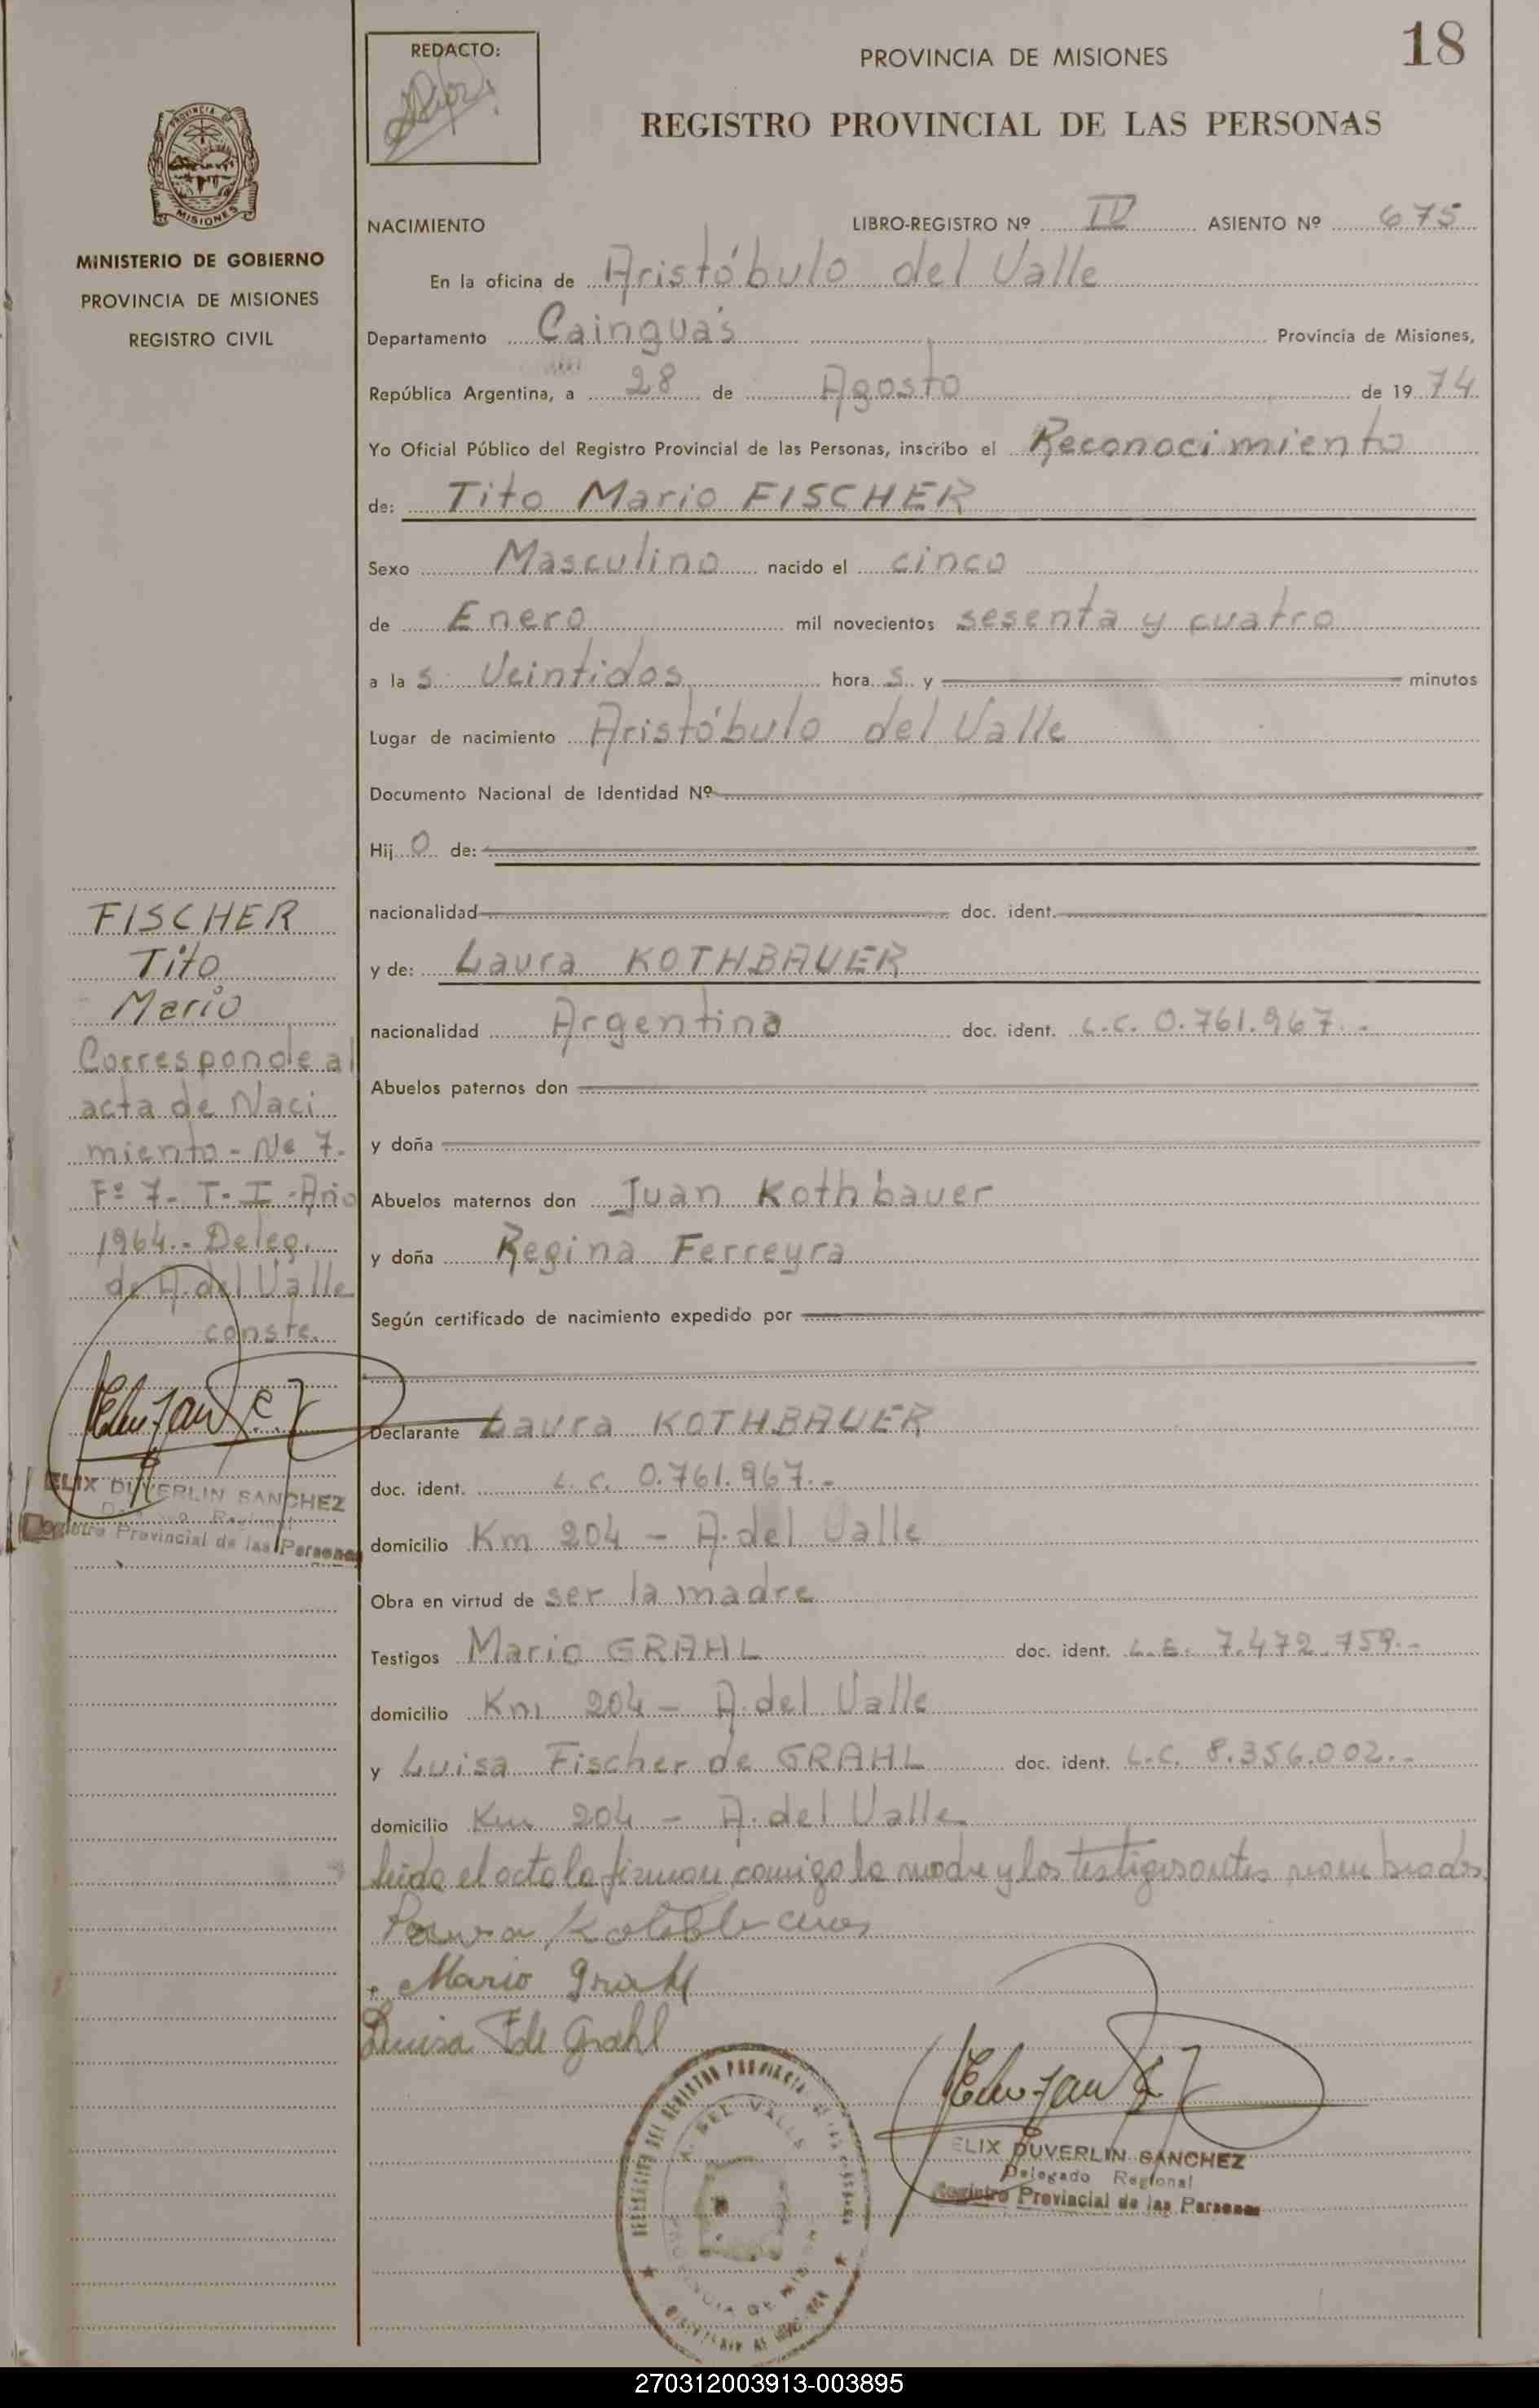 REDACTO:
PROVINCIA DE MISIONES
18
REGISTRO PROVINCIAL DE LAS PERSONAS
PROVINCIA DE
MISIONES
MINISTERIO DE GOBIERNO
PROVINCIA DE MISIONES
REGISTRO CIVIL
NACIMIENTO LIBRO-REGISTRO Nº IV ASIENTO Nº 675
En la oficina de Aristóbulo del Valle
Departamento Cainguás Provincia de Misiones,
República Argentina, a 28 de Agosto de 1974
Yo Oficial Público del Registro Provincial de las Personas, inscribo el Reconocimiento
de: Tito Mario FISCHER
Sexo Masculino nacido el cinco
de Enero mil novecientos sesenta y cuatro
a las Veintidos horas y minutos
Lugar de nacimiento Aristóbulo del Valle
Documento Nacional de Identidad Nº
Hijo de:
nacionalidad doc. ident.
y de: Laura KOTHBAUER
nacionalidad Argentina doc. ident. L.C. 0.761.967.-
Abuelos paternos don
y doña
Abuelos maternos don Juan Kothbauer
y doña Regina Ferreyra
Según certificado de nacimiento expedido por
Declarante Laura KOTHBAUER
doc. ident. L.C. 0.761.967.-
domicilio Km 204 - A. del Valle
Obra en virtud de ser la madre
Testigos Mario GRAHL doc. ident. L.E. 7.472.759.-
domicilio Km 204 - A. del Valle
y Luisa Fischer de GRAHL doc. ident. L.C. 8.356.002.-
domicilio Km 204 - A. del Valle
leida el acta la firman comigo la madre y los testigos antes nombrados.
Laura
Mario Grahl
Luisa F de Grahl
FISCHER
Tito
Mario
Corresponde al
acta de Naci
miento - Nº 7-
Fº 7- T- I -Año
1964.- Deleg.
de A. del Valle
conste.
ELIX DUVERLIN SANCHEZ
Registro Provincial de las Personas
DELEGACION DEL REGISTRO PROVINCIAL DE LAS PERSONAS
A. DEL VALLE
PROVINCIA DE MISIONES
ELIX DUVERLIN SANCHEZ
Delegado Regional
Registro Provincial de las Personas
270312003913-003895